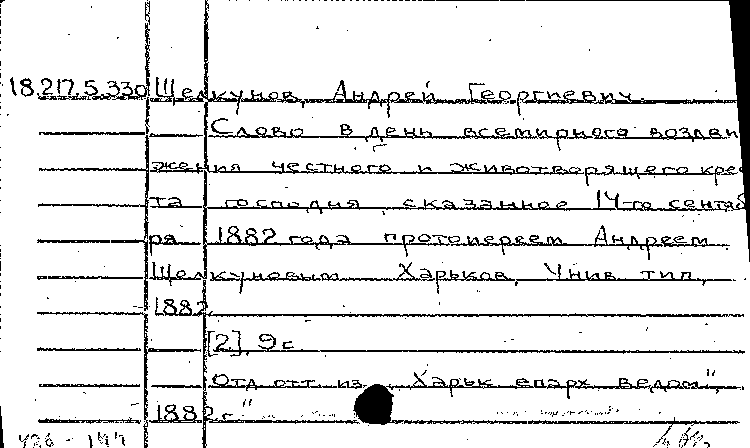 18.217.5.330 Щелкунов, Андрей Георгиевич.
Слово в день всемирного воздви
жения честного и животворящего кре
та господня, сказанное 14-го сентяб
ря 1882 года протоиереем Андреем
Щелкуновым. Харьков, Унив. тип.,
1882.
[2], 9 с.
Отд. отт. из „Харьк. епарх. ведом",
1882 г."